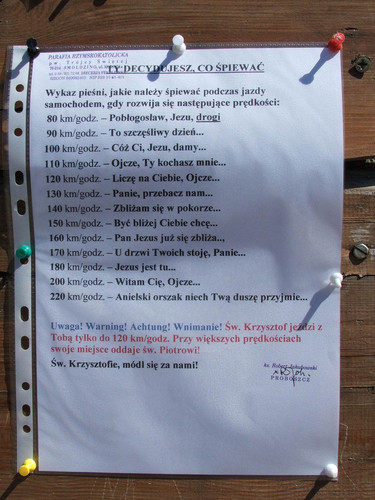 PARAFIA RZYMSKOKATOLICKA
p.w. Trójcy Świętej
TY DECYDUJESZ, CO ŚPIEWAĆ
Wykaz pieśni, jakie należy śpiewać podczas jazdy
samochodem, gdy rozwija się następujące prędkości:
80 km/godz. – Pobłogosław, Jezu, drogi
90 km/godz. – To szczęśliwy dzień...
100 km/godz. – Cóż Ci, Jezu, damy...
110 km/godz. – Ojcze, Ty kochasz mnie...
120 km/godz. – Liczę na Ciebie, Ojcze...
130 km/godz. – Panie, przebacz nam...
140 km/godz. – Zbliżam się w pokorze...
150 km/godz. – Być bliżej Ciebie chcę...
160 km/godz. – Pan Jezus już się zbliża..,
170 km/godz. – U drzwi Twoich stoję, Panie...
180 km/godz. – Jezus jest tu...
200 km/godz. – Witam Cię, Ojcze...
220 km/godz. – Anielski orszak niech Twą duszę przyjmie...
Uwaga! Warning! Achtung! Wnimanie! Św. Krzysztof jeździ z
Tobą tylko do 120 km/godz. Przy większych prędkościach
swoje miejsce oddaje św. Piotrowi!
Św. Krzysztofie, módl się za nami!
ks. Robert
PROBOSZCZ